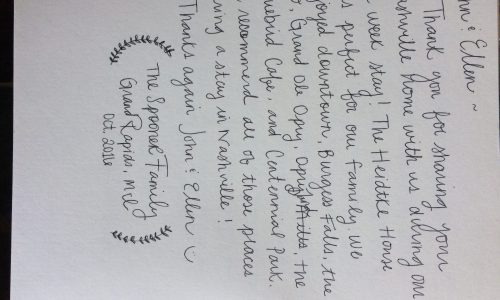 & Ellen ~
Thank you for sharing your
Nashville home with us during our
week stay! The Heidtke House
perfect for our family. We
downtown, Burgess Falls, the
Grand Ole Opry, Opry Mills, the
Cafe, and Centennial Park.
recommend all of those places
a stay in Nashville!
Thanks again John & Ellen
The Spooner Family
Grand Rapids, MI
Oct 2016